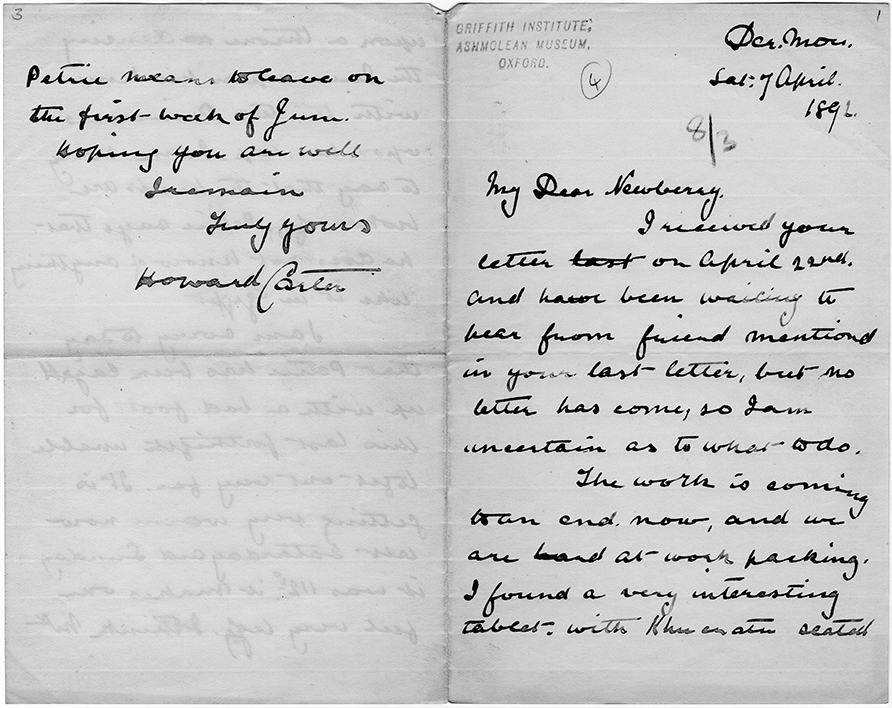 1
GRIFFITH INSTITUTE,
ASHMOLEAN MUSEUM,
OXFORD.
4
Der. Mou.
Sat: 7 April.
1892.
8/3
My Dear Newberry.
I received your
letter last on April 22nd.
and have been waiting to
hear from friend mentiond
in your last letter, but no
letter has come, so I am
uncertain as to what to do.
The work is coming
to an end. now, and we
are hard at work packing.
I found a very interesting
tablet. with Khuenatu seated
3
Petrie means to leave on
the first week of June.
Hoping you are well
I remain
Truly yours
Howard Carter